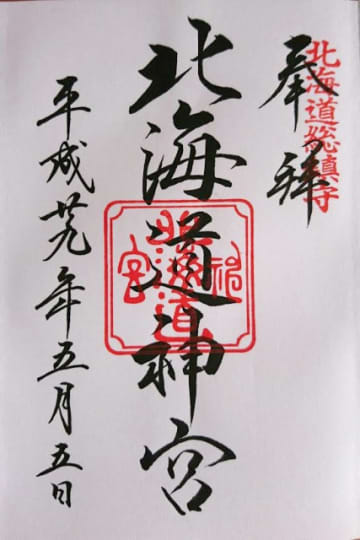 奉拝
北海道総鎮守
北海道神宮
北海道神宮
平成廿九年五月五日